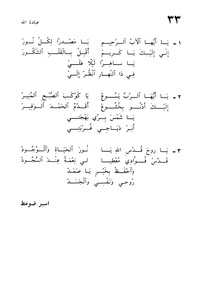 عبادة الله
٣٣
١ - يَا أَيُّهَا الْآبُ الرَّحِيمُ يَا مَصْدَرًا لِكُلِّ نُورْ
إِنِّي إِلَيْكَ يَا كَرِيمُ أُقْبِلُ بِالْقَلْبِ الشَّكُورْ
يَا سَاهِرًا لَيْلًا عَلَيّ
فِي ذَا النَّهَارِ انْظُرْ إِلَيّ
٢ - يَا أَيُّهَا الرَّبُّ يَسُوعُ يَا كَوْكَبَ الصُّبْحِ الْمُنِيرْ
إِلَيْكَ أَدْنُو بِخُشُوعْ أُقَدِّمُ الْحَمْدَ الْوَفِيرْ
يَا شَمْسَ بِرِّي بَهْجَتِي
أَنِرْ دَيَاجِي غُرْبَتِي
٣ - يَا رُوحَ قُدْسِ اللهِ يَا نُورَ الْحَيَاةِ وَالْوُجُودْ
قَدِّسْ فُؤَادِي مُعْطِيًا لِي نِعْمَةً عِنْدَ السُّجُودْ
وَاحْفَظْ بِخَيْرٍ يَا صَمَدْ
رُوحِي وَنَفْسِي وَالْجَسَدْ